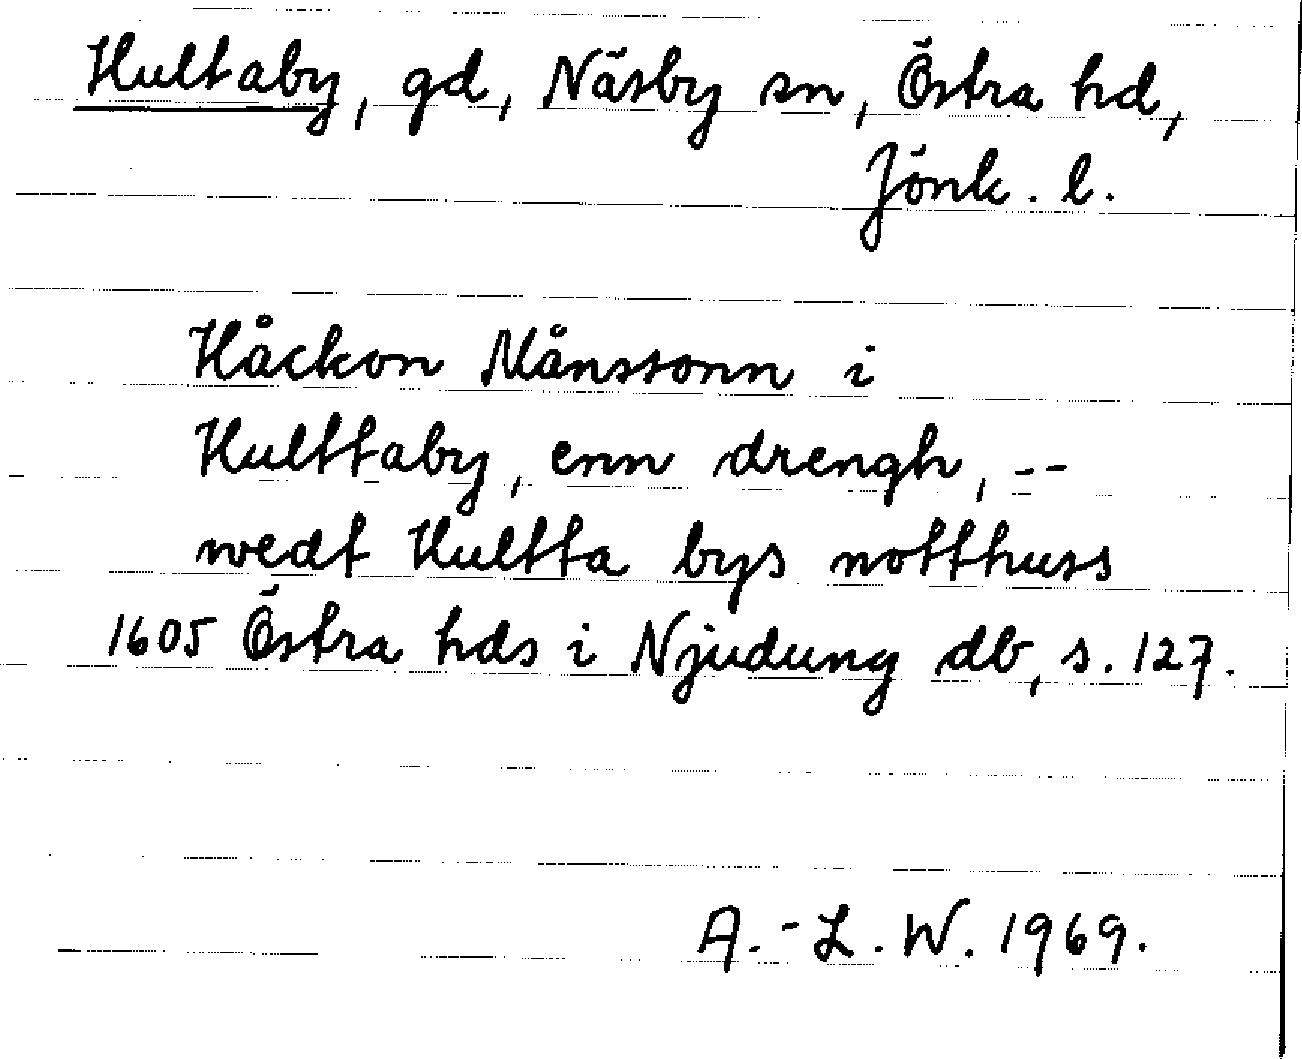 Hultaby, gd, Näsby sn, Östra hd,
Jönk. l.
Håckon Månssonn i
Hulttaby, enn drengh, --
wedt Hultta bys notthuss
1605 Östra hds i Njudung db, s. 127.
A.-L. W. 1969.